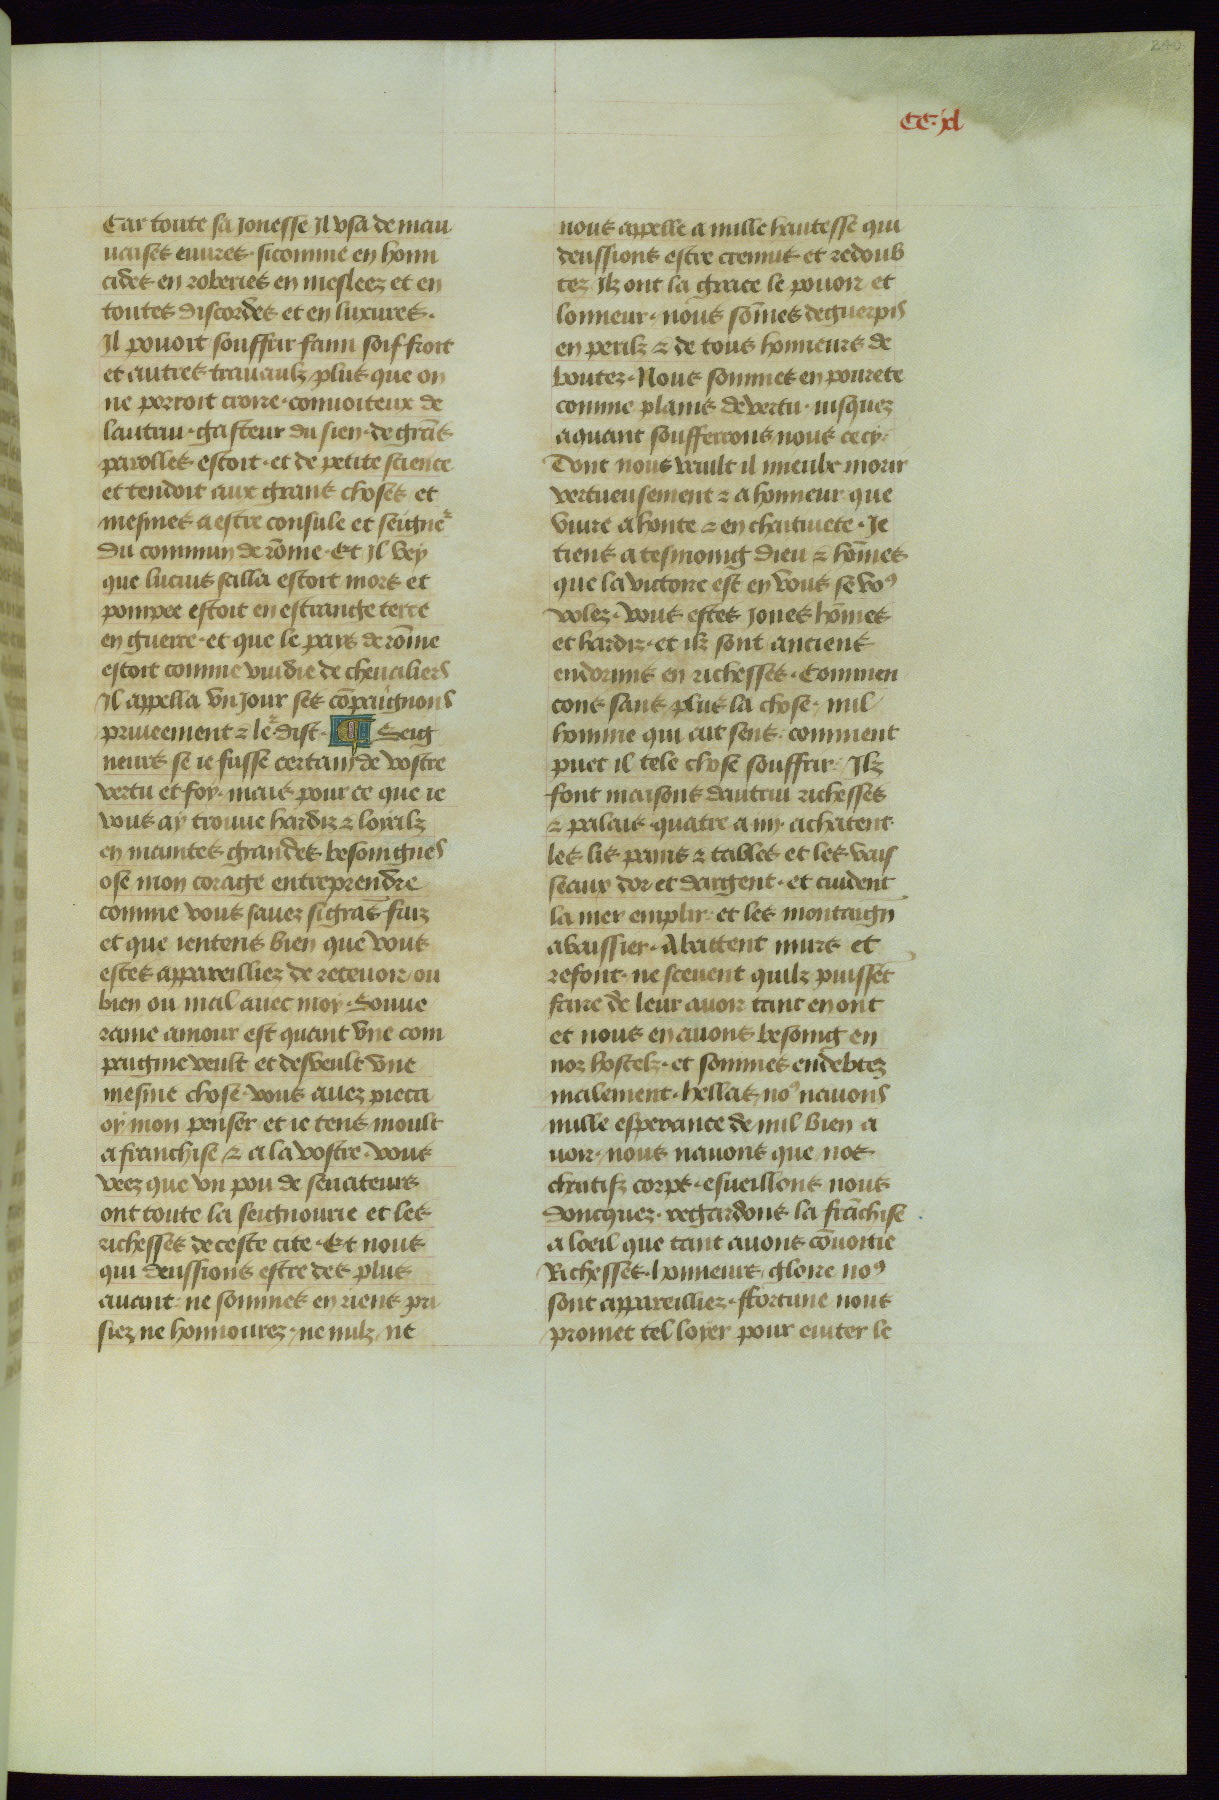 240
CC. xl
Car toute sa jonesse Il vsa de mau
uaises euures · sicomme en homi
cides en roberies en mesleez et en
toutes discordes et en luxures ·
Il pouoit souffrir faim soif froit
et autres trauaulz plus que on
ne porroit croire · conuoiteux de
lautrui · gasteur du sien · de grãs
parolles estoit · et de petite science
et tendoit aux grans choses et
mesmes a estre consule et seigneʳ
du commun de rõme · Et Il vey
que lucius scilla estoit mors et
pompee estoit en estrange terre
en guerre · et que le pais de rõme
estoit comme vuidie de cheualiers
Il appella vn Jour ses cõpaignons
priueement ⁊ leʳ dist · ¶ Seig
neurs se ie fusse certain de vostre
vertu et foy · mais pour ce que ie
vous ay trouue hardiz ⁊ loyalz
en maintes grandes besoingnes
ose mon corage entreprendre
comme vous sauez si grãs faiz
et que ientens bien que vous
estes appareilliez de receuoir ou
bien ou mal auec moy · Souue
raine amour est quant vne com
paignie veult et desveult vne
mesme chose · vous auez pieca
oy mon penser et ie tens moult
a franchise / ⁊ a la vostre · vous
veez que vn pou de senateurs
ont toute la seignourie et les
richesses de ceste cite · Et nous
qui deussions estre des plus
auant · ne sommes en riens pri
siez ne honnourez · ne nulz / ne
nous appelle a nulle hautesse qui
deussions estre cremus et redoub
tez Ilz ont la grace le pouoir et
lonneur · nous sõmes deguerpis
en perilz ⁊ de tous honneurs de
boutez · Nous sommes en pourete
comme plains de vertu · iusquez
a quant soufferrons nous cecy ·
Dont nous vault il mieulx morir
vertueusement ⁊ a honneur que
viure a honte ⁊ en chaitiuete · Je
tiens a tesmoing dieu ⁊ hõmes
que la victoire est en vous se voꝰ
volez · vous estes Jones hõmes
et hardiz · et ilz sont anciens
endormis en richesses · Commen
cons sans plus la chose · nul
homme qui ait sens · comment
puet il tele chose souffrir · Ilz
font maisons dautrui richesses
⁊ palais · quatre a iiii · achatent
les lis pains ⁊ tables et les vais
seaux dor et dargent · et cuident
la mer emplir · et les montaign
abaissier · Abattent murs et
refont · ne sceuent quilz puissẽt
faire de leur auoir tant en ont
et nous en auons besoing en
noz hostelz · et sommes endebtez
malement · hellas noꝰ nauons
nulle esperance de nul bien a
uoir · nous nauons que nos
chaitifz corps · esueillons nous
doncquez · regardons la frãchise
a loeil que tant auons cõuoitie
Richesses · honneurs · gloire noꝰ
sont appareilliez · ffortune nous
promet tel loyer pour euiter le